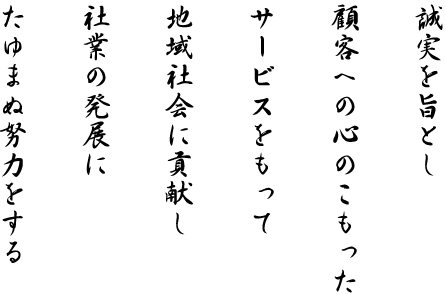 誠実を旨とし
顧客への心のこもった
サービスをもって
地域社会に貢献し
社業の発展に
たゆまぬ努力をする